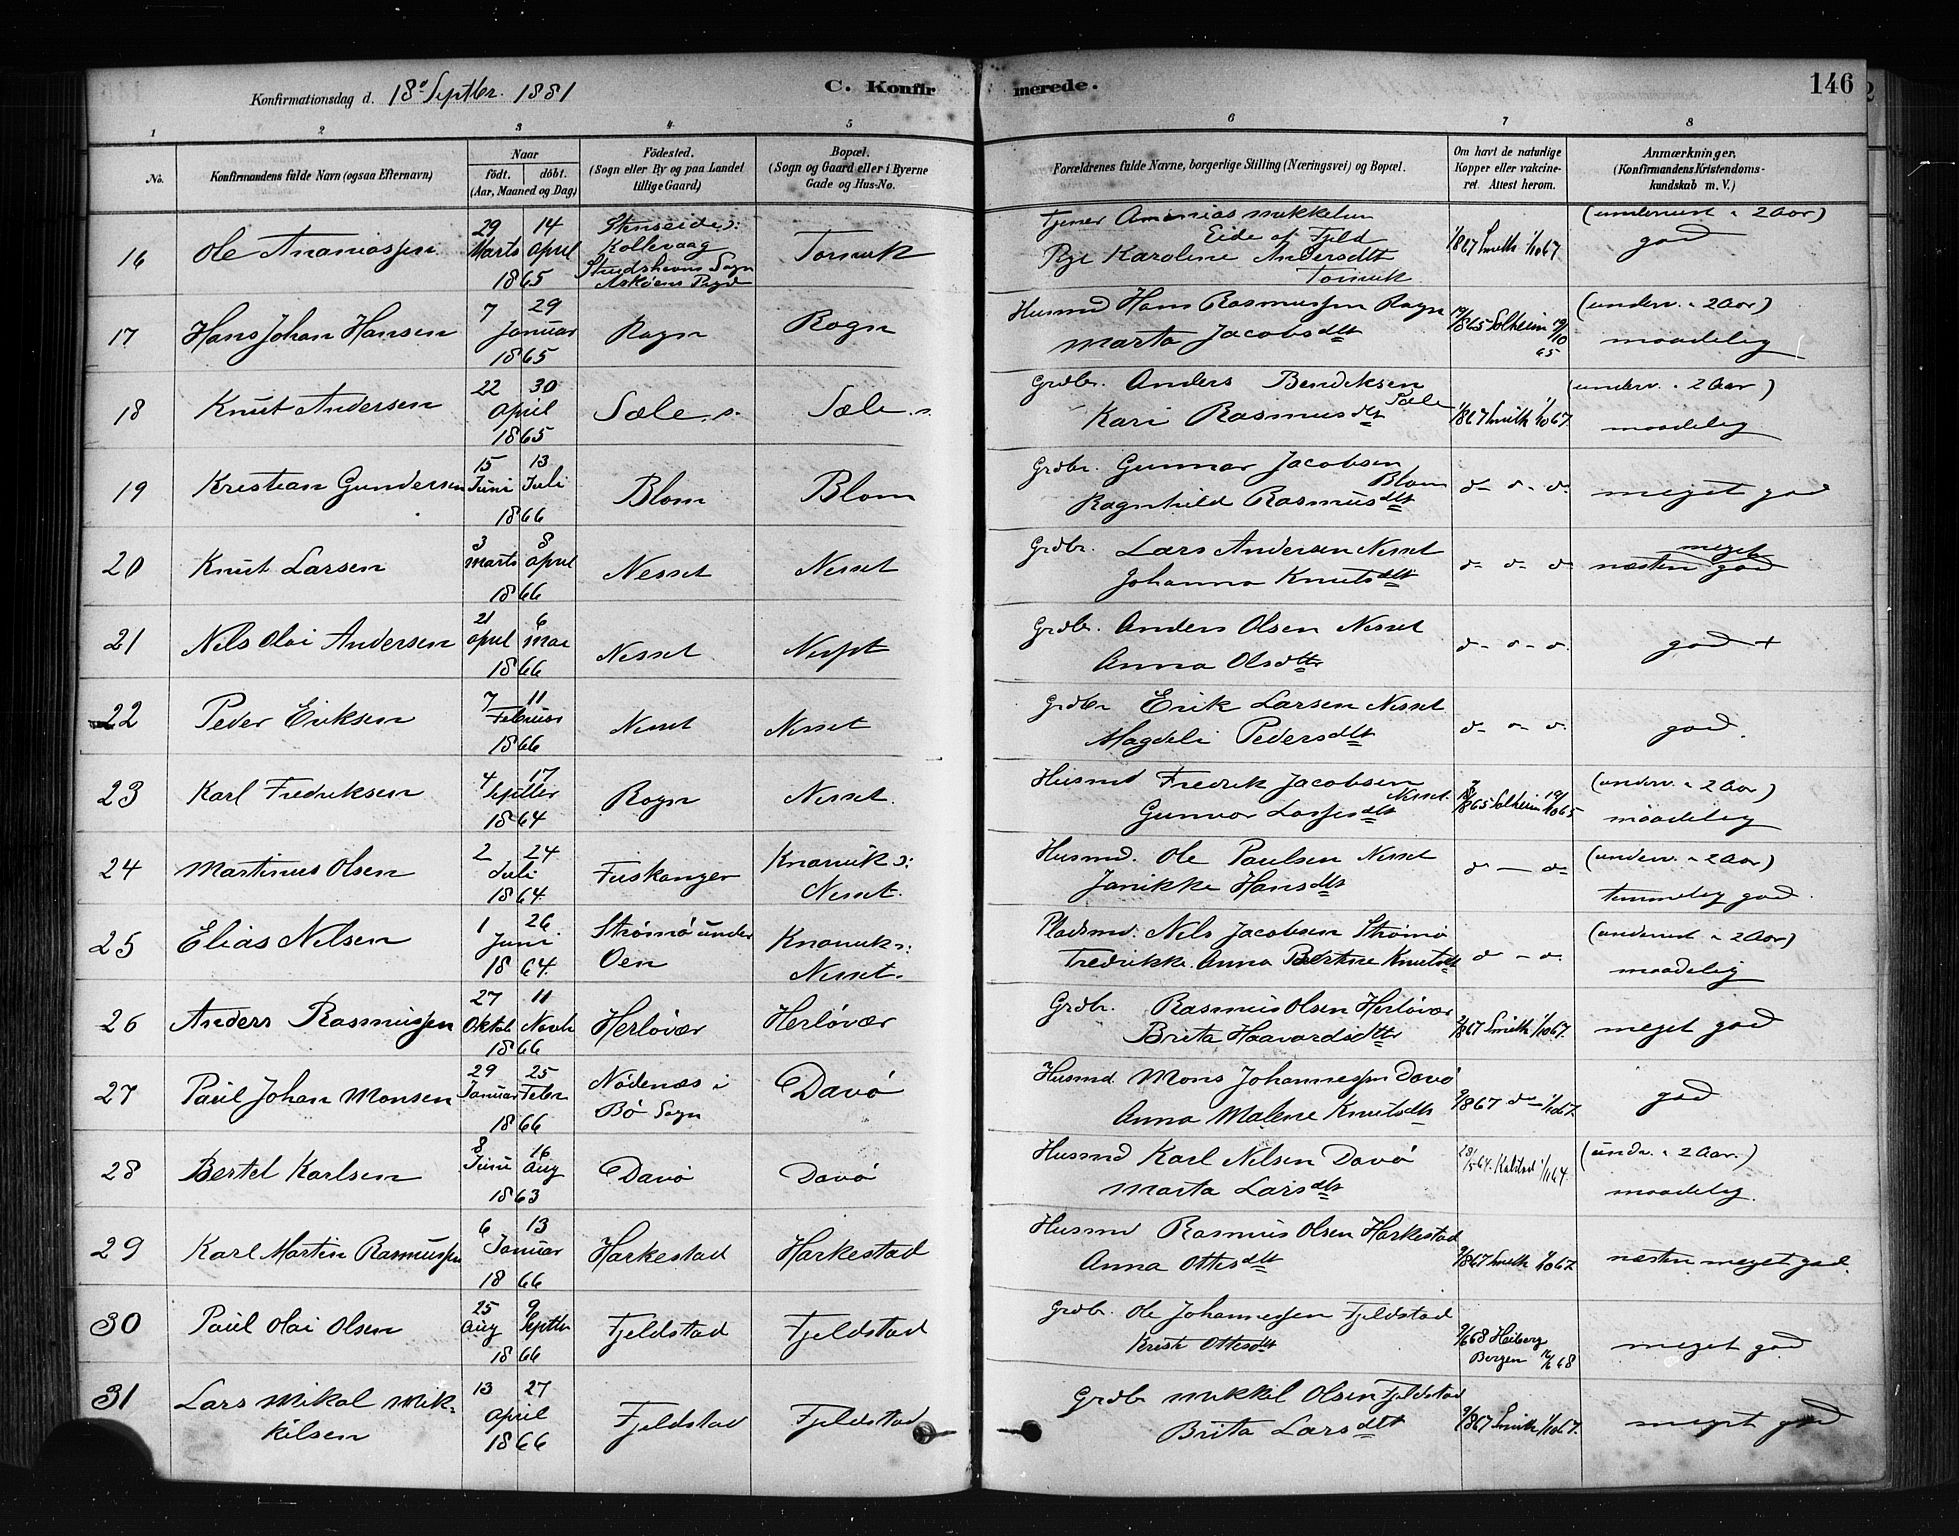 Konfirmationsdag d. 18de Septbr. 1881 C. Konfirmerede. 146
1 2 3 4 5 6 7 8
No. Konfirmandens fulde Navn (ogsaa Efternavn) Naar födt. döbt. (Aar, Maaned og Dag) Födested. (Sogn eller By og paa Landet tillige Gaard) Bopæl. (Sogn og Gaard eller i Byerne Gade og Hus-No. Forældrenes fulde Navne, borgerlige Stilling (Næringsvei) og Bopæl. Om havt de naturlige Kopper eller vaccineret. Attest herom. Anmærkninger. (Konfirmandens Kristendomskundskab m. V.)
16 Ole Ananiassen 29 Marts 14 April 1865 Stenseide Kollevaag Sogn Askøens Torsvik Tjener Ananias Mikkelsen Eide af Fjeld Pige Karoline Andersdtt Torsvik 1/867 Smith 1/1067. (undervist i 2 Aar) god
17 Hans Johan Hansen 7 29 Januar 1865 Rogn Rogn Husmd Hans Rasmussen Rogn Marta Jacobsdtt 17/865 Solheim 19/10 65 (underv. i 2 Aar) maadelig
18 Knut Andersen 22 30 April 1865 Sæle s. Sæle s. Grdbr. Anders Bendiksen Sæle Kari Rasmusdtt 1/867 Smith 1/1067. (underv. i 2 Aar) maadelig
19 Kristian Gundersen 15 Juni 13 Juli 1866 Blom Blom Grdbr. Gunnar Jacobsen Blom Ragnhild Rasmusdtt d- d- d- meget god
20 Knut Larsen 3 Marts 8 April 1866 Nesset Nesset Grdbr. Lars Andersen Nesset Johanna Knutsdtt d- d- d- næsten meget god
21 Nils Olai Andersen 21 April 6 Mai 1866 Nesset Nesset Grdbr. Anders Olsen Nesset Anna Olsdtr d- d- d- god +
22 Peder Eriksen 7 11 Februar 1866 Nesset Nesset Grdbr Erik Larsen Nesset Magdeli Pedersdtt d- d- d- god.
23 Karl Fredriksen 4 17 Septbr 1864 Rogn Nesset. Husmd Fredrik Jacobsen Nesset Gunvor Lassesdtt 17/865 Solheim 19/1065 (underv. i 2 Aar) maadelig
24 Martinus Olsen 2 24 Juli 1864 Fuskanger Knarvik s: Nesset. Husmd. Ole Paulsen Nesset Janikke Hansdtt d- d- (underv. i 2 Aar) temmelig god.
25 Elias Nilsen 1 26 Juni 1864. Strömö under Oen Knarvik s: Nesset. Pladsmd. Nils Jacobsen Strömö Fredrikke Anna Bertine Knutsdt d- d- (undervist i 2 Aar) maadelig
26 Anders Rasmussen 27 Oktob 11 Novb 1866 Herlövær Herlövær Grdbr. Rasmus Olsen Herlövær Brita Haavardsdtr 9/867 Smith 1/1067. meget god
27 Paul Johan Monsen 29 Januar 25 Febr 1866 Nödenæs i Bö Sogn Davö Husmd. Mons Johannessen Davö Anna Malene Knutsdtt 9/867 do 1/1067. god
28 Bertel Karlsen 8 Juni 16 Aug 1863 Davö Davö Husmd Karl Nilsen Davö Marta Larsdtt (underv. i 2 Aar.) maadelig.
29 Karl Martin Rasmussen 6 13 Januar 1866 Harkestad Harkestad Husmd Rasmus Olsen Harkestad Anna Ottesdtt 9/867 Smith 1/1067. næsten meget god.
30 Paul Olai Olsen 25 Aug 9 Septbr 1866 Fjeldstad Fjeldstad Grdbr. Ole Johannessen Fjeldstad Kristi Ottesdtt 9/668 Heiberg Bergen 16/6 68 meget god
31 Lars Mikal Mikkelsen 13 27 April 1866 Fjeldstad Fjeldstad Grdbr Mikkel Olsen Fjeldstad Brita Larsdtt 9/867 Smith 1/1067. meget god